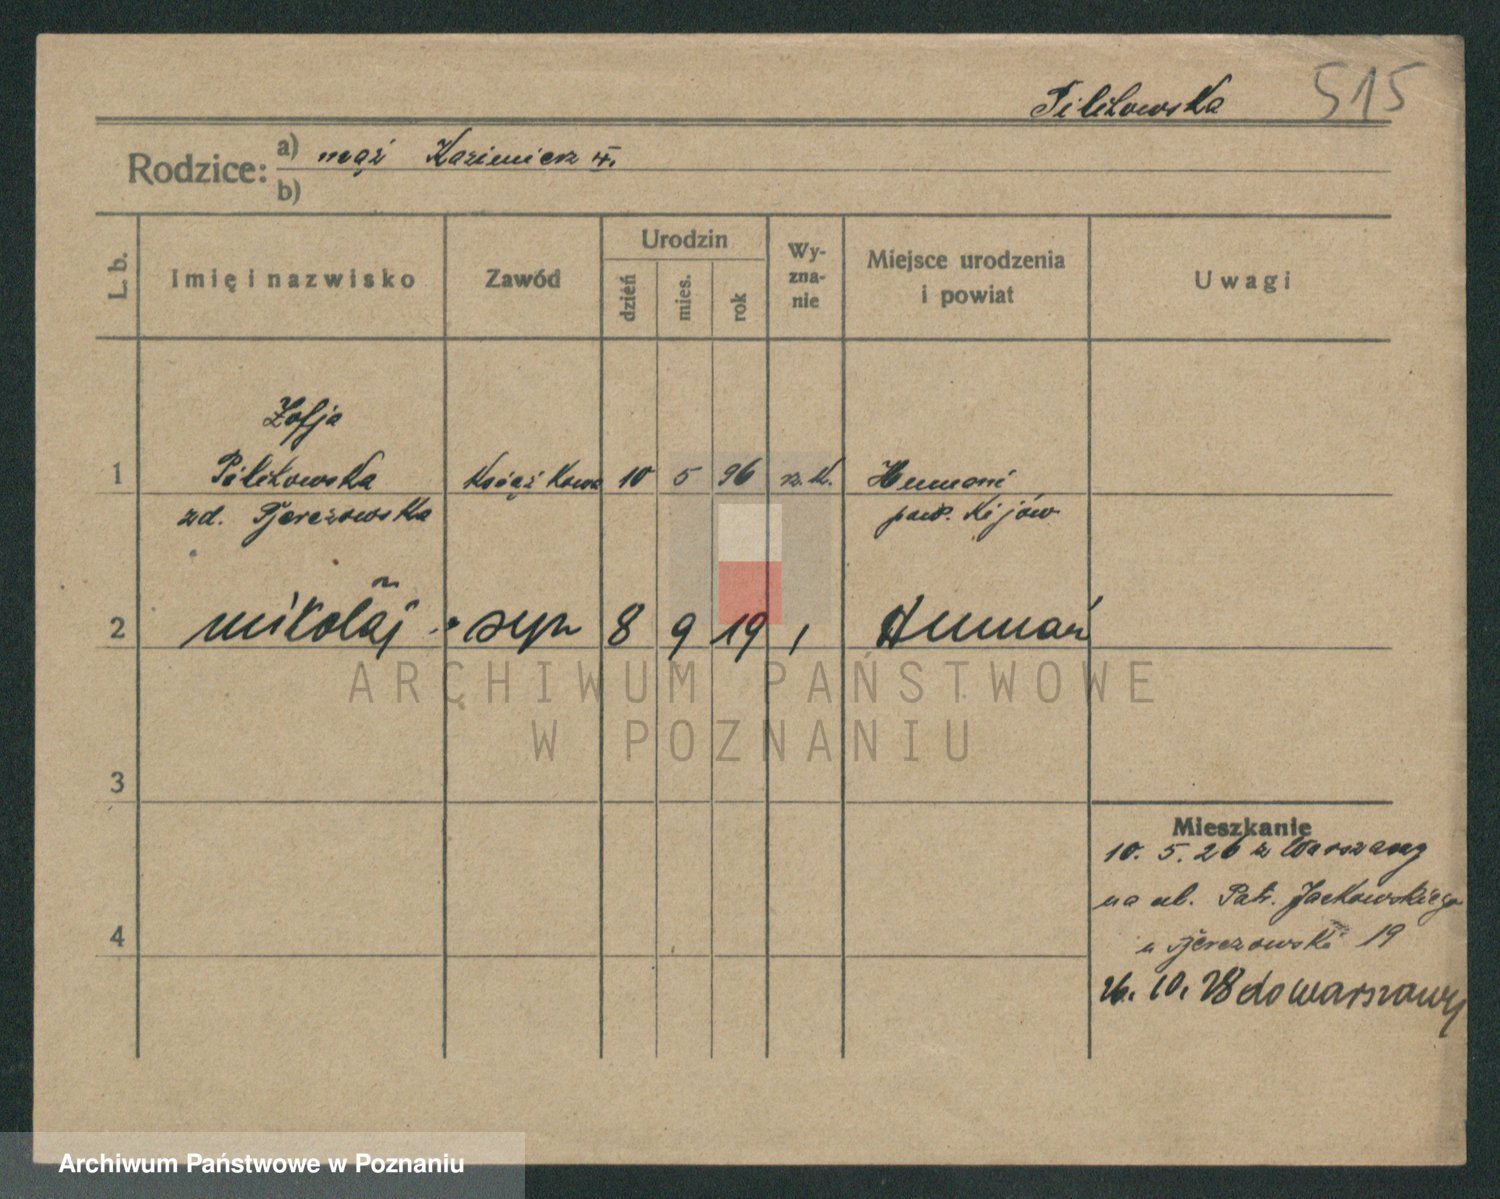 515
Pilitowska
Rodzice: a) mąż Kazimierz
b)
L. b.
Imię i nazwisko
Zawód
Urodzin
dzień
mies.
rok
Wy-
zna-
nie
Miejsce urodzenia
i powiat
Uwagi
Zofja
1 Pilitowska 10 5 96 rz. k. Humani
zd. pow. Kijów
2 Mikołaj - syn 8 9 19 Humań
3
4
Mieszkanie
10. 5. 26 z Warszawy
na ul. Patr. Jackowskiego
u 19
26. 10. 28 do Warszawy
ARCHIWUM PAŃSTWOWE
W POZNANIU
Archiwum Państwowe w Poznaniu